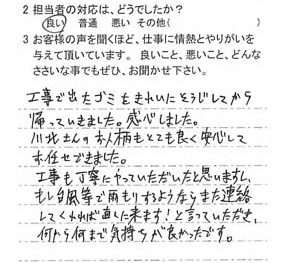 2 担当者の対応は、どうでしたか?
良い 普通 悪い その他(
3 お客様の声を聞くほど、仕事に情熱とやりがいを
与えて頂いています。良いこと、悪いこと、どんな
ささいな事でもぜひ、お聞かせ下さい。
工事で出たゴミをきれいにそうじしてから
帰っていきました。感心しました。
川北さんのお人柄もとても良く安心して
お任せできました。
工事も丁寧にやっていただいたと思いますし、
もし台風等で雨もりするようならまた連絡
してくれれば直しに来ます!と言っていただき、
何から何まで気持ちが良かったです。